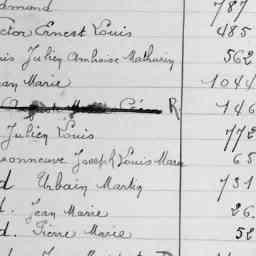 dmond 787
ctor Ernest Louis 485
is Julien Ambroise Mathurin 562
ean Marie 1044
R 146
Julien Louis 772
onneuve Joseph Louis Marie 65
d. Urbain Martin 731
d. Jean Marie 26
d. Pierre Marie 52